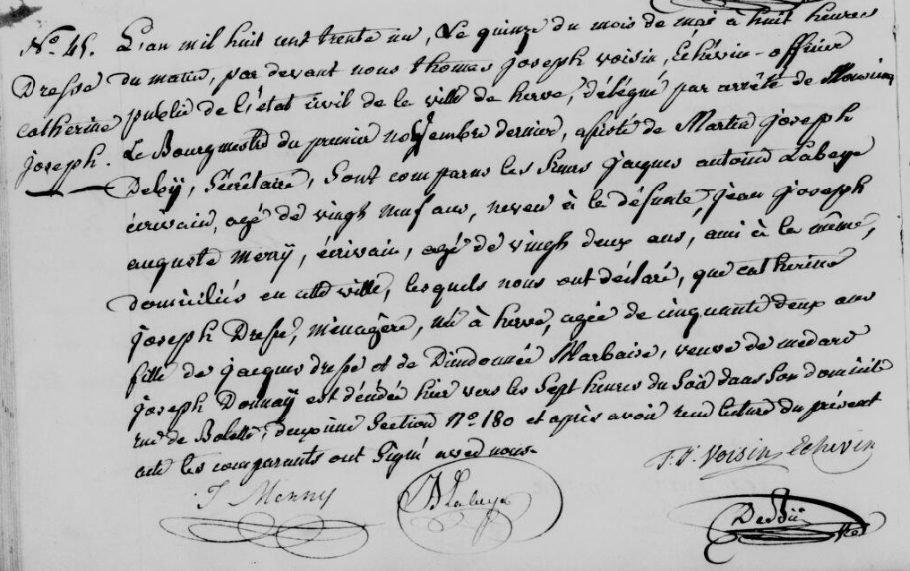 N.o 45.
Dresse
catherine
joseph.
L'an mil huit cent trente un, Le quinze du mois de mai à huit heures
du matin, par devant nous thomas joseph voisin, Échévin-officier
public de l'état civil de la ville de herve, délégué par arrêté de Monsieur
Le Bourgmestre du premier novembre dernier, assisté de Martin joseph
Sécrétaire, Sont comparus les Sieurs jacques antoine Labeye
écrivain, agé de vingh neuf ans, neveu à la défunte, jean joseph
auguste écrivain, agé de vingh deux ans, ami à la même,
domiciliés en cette ville, lesquels nous ont déclaré, que catherine
joseph Dresse, ménagère, née à herve, agée de cinquante deux ans
fille de jacques dresse et de Dieudonnée Marbaise, veuve de medard
joseph Donnaÿ est décédée hier vers les Sept heures du Soir dans Son domicile
rue de deuxième Section N.o 180 et après avoir rendu lecture du présent
acte les comparants ont Signé avec nous.
T. J. Voisin Echevin
J Merry
Labeye